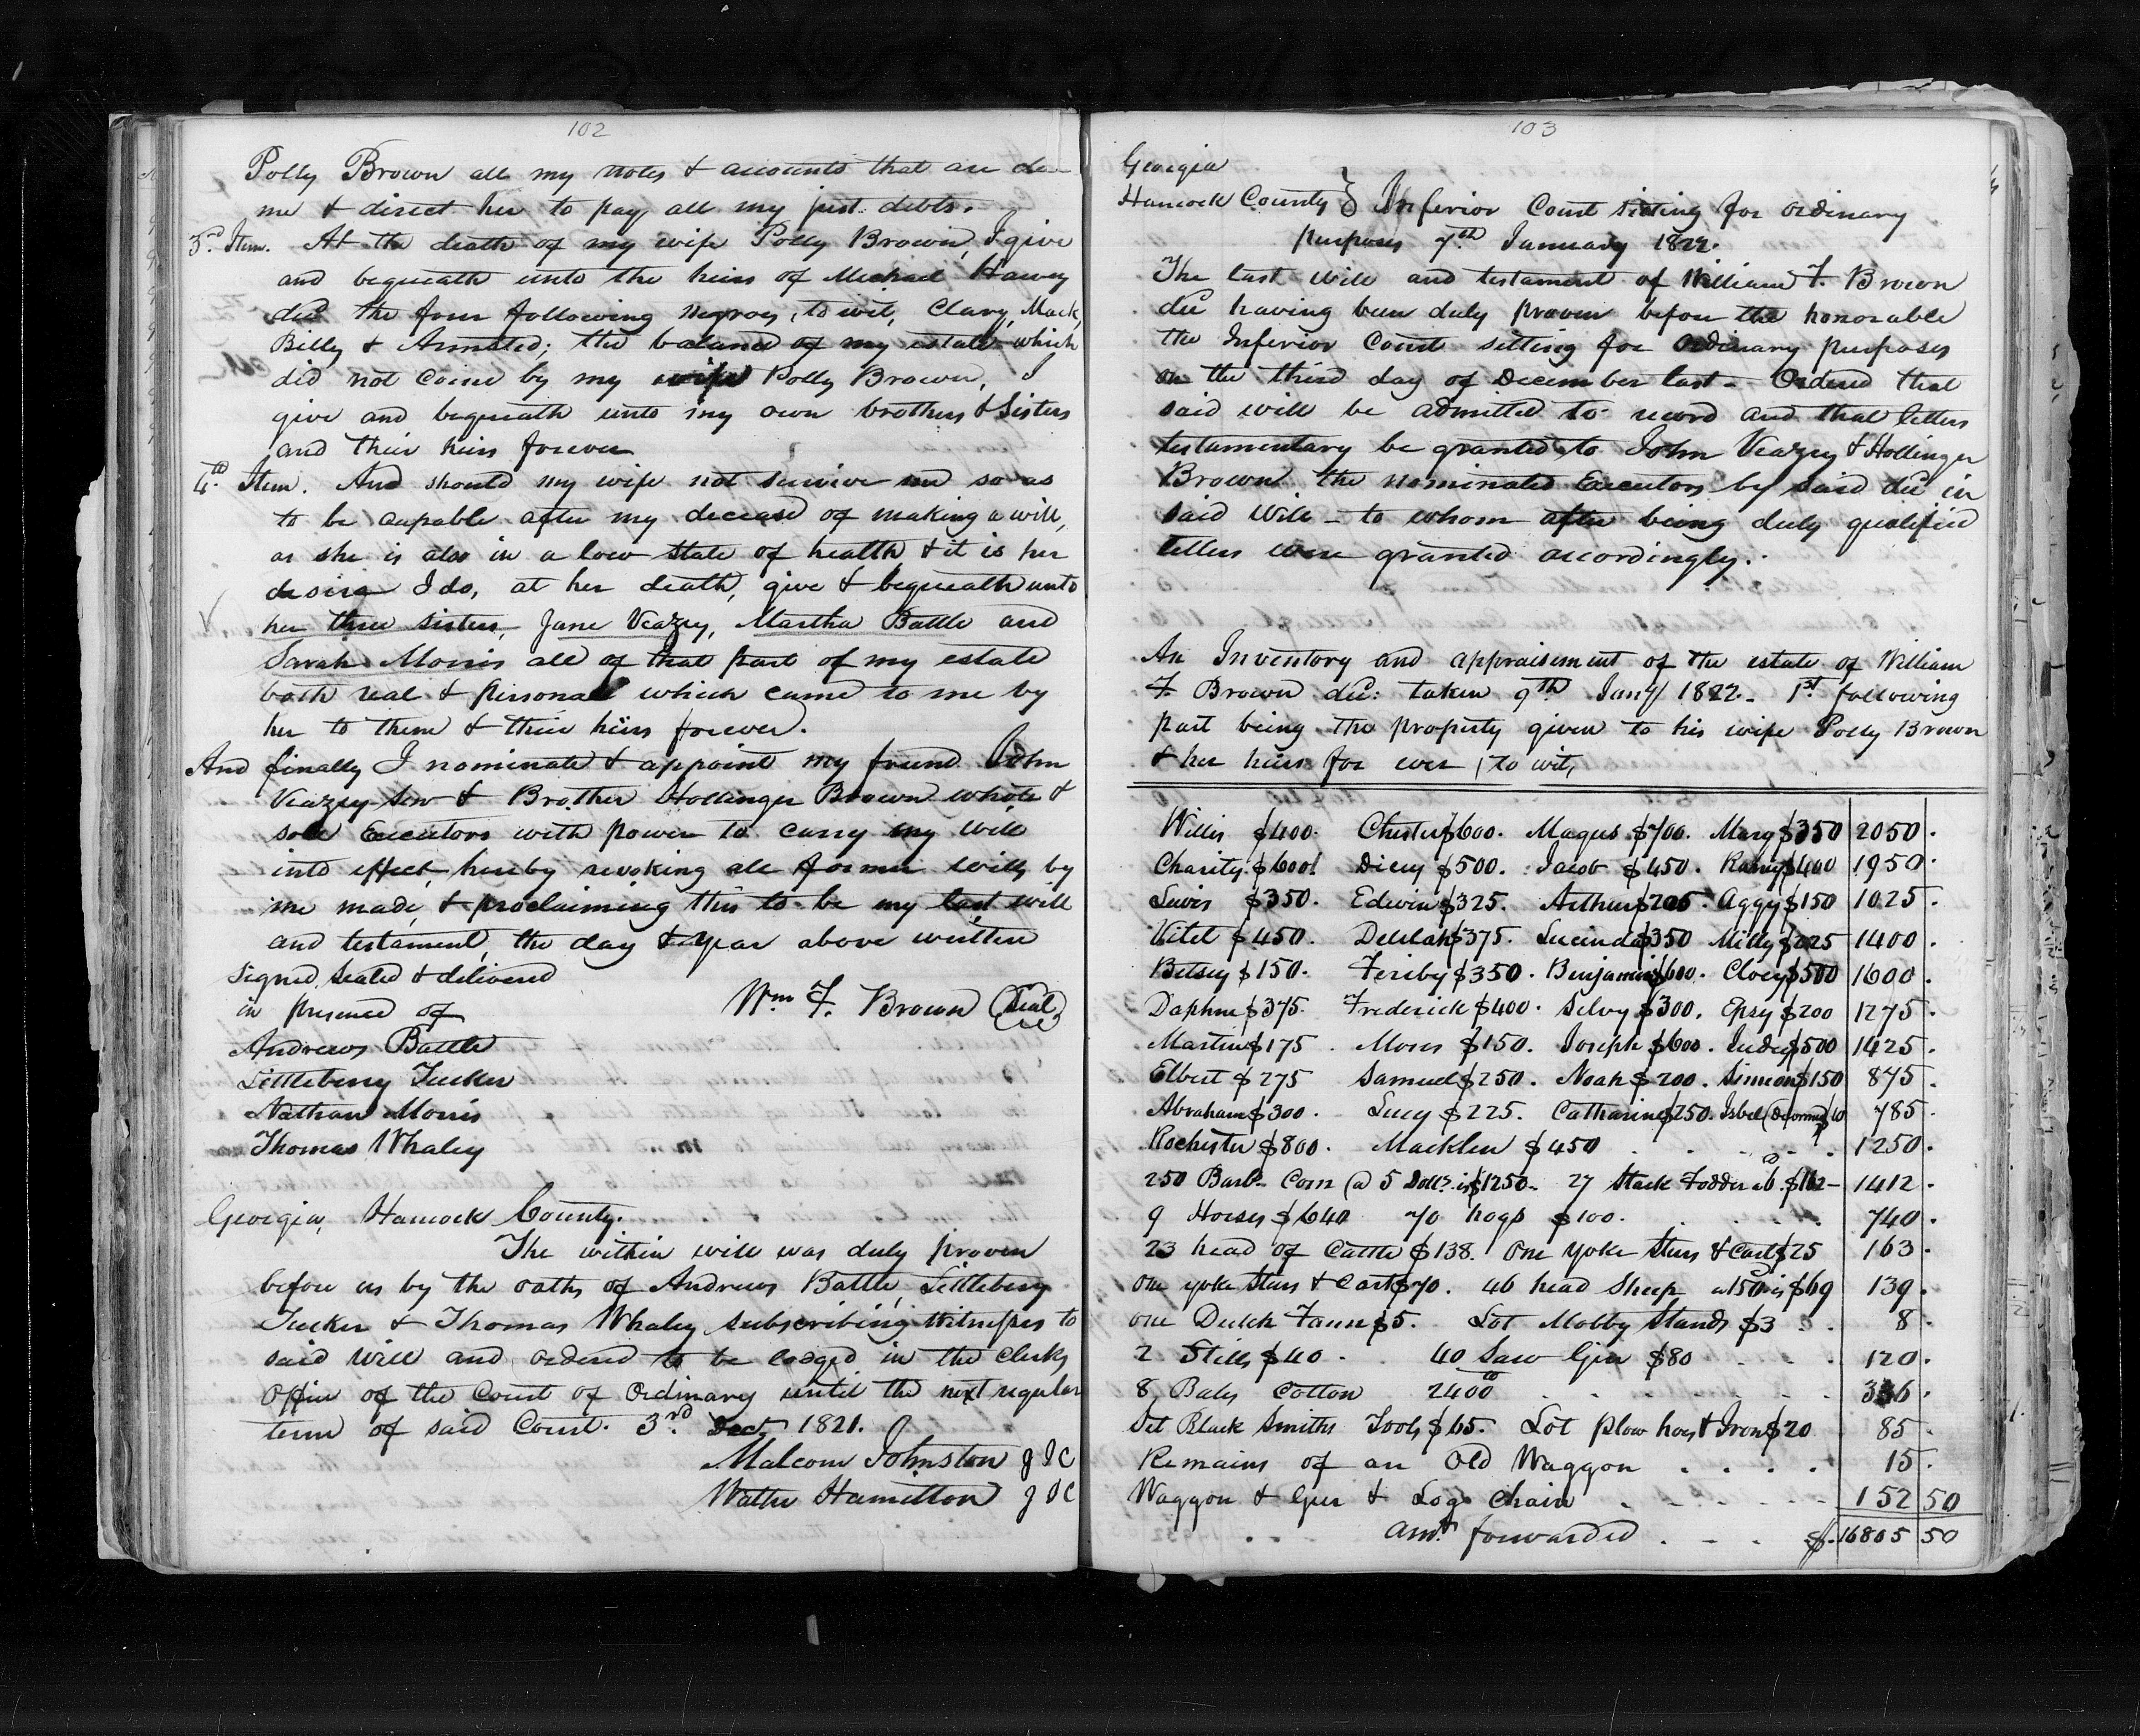 102
Polly Brown all my notes & accounts that are due
me & direct her to pay all my just debts.
3rd Item. At the death of my wife Polly Brown, I give
and bequeath unto the heirs of Michael Harvey
decd the four following negroes, to wit, Clary, Mack,
Billy & Arnsted; the balance of my estate which
did not come by my wife Polly Brown, I
give and bequeath unto my own brothers & Sisters
and their heirs forever
4th Item. And should my wife not survive me so as
to be capable after my decease of making a will,
as she is also in a low state of health & it is her
desire I do, at her death, give & bequeath unto
her three sisters, Jane Veazey, Martha Battle and
Sarah Morris all of that part of my estate
both real & personal which came to me by
her to them & their heirs forever.
And finally I nominate & appoint my friend John
Veazey Senr & Brother Hollinger Brown whole &
sole Executors with power to carry my will
into effect, hereby revoking all former wills by
me made, & proclaiming this to be my last will
and testament, the day & year above written
Signed, Sealed & delivered
in presence of Wm F. Brown (Seal)
Andrews Battle
Littleberry Tucker
Nathan Morris
Thomas Whaley
Georgia, Hancock County.
The within will was duly proven
before us by the oaths of Andrews Battle, Littleberry
Tucker & Thomas Whaley subscribing witnesses to
said will and ordered to be lodged in the Clerks
Office of the Court of Ordinary until the next regular
term of said Court. 3rd Dec. 1821.
Malcom Johnston J I C
Walter Hamilton J I C
103
Georgia
Hancock County } Inferior Court sitting for ordinary
purposes 7th January 1822.
The last will and testament of William F. Brown
decd having been duly proven before the honorable
the Inferior Court sitting for Ordinary purposes
on the third day of December last - Ordered that
said will be admitted to record and that letters
testamentary be granted to John Veazey & Hollinger
Brown the nominated Executors by said decd in
said Will - to whom after being duly qualified
letters were granted accordingly.
An Inventory and appraisement of the estate of William
F. Brown decd: taken 9th Jany 1822. 1st following
part being the property given to his wife Polly Brown
& her heirs for ever, to wit,
Willis $400. Chester $600. Magus $700. Mary $350 2050.
Charity $600. Dicey $500. Jacob $450. $400 1950.
Lewis $350. Edwin $325. Arthur $205. Aggy $150 1025.
Vitel $450. Delilah $375. Lucinda $350 Milly $225 1400.
Betsey $150. Feriby $350. Benjamin $600. Cloey $500 1600.
Daphne $375. Frederick $400. Selvy $300. Epsy $200 1275.
Martin $175. Moses $150. Joseph $600. Judey $500 1425.
Elbert $275 Samuel $250. Noah $200. Simeon $150 875.
Abraham $300. Lucy $225. Catharine $250. Isbel (Deformed) $10 785.
Rochester $800. Macklen $450 1250.
250 Barls Corn @ 5 Dolls is $1250. 27 Stack Fodder a 6 $162 - 1412.
9 Horses $640 70 hogs $100. 740.
23 head of Cattle $138. One yoke Stears & Cart $25 163.
one yoke Stears & Cart $70. 46 head Sheep a 150 is $69 139.
one Dutch Fann $5. Lot Mobby Stands $3 8.
2 Stills $40. 40 Saw Gin $80 120.
8 Bales Cotton 2400 lb 336.
Set Black Smiths Tools $65. Lot plow hoes & Iron $20 85.
Remains of an Old Waggon 15.
Waggon & Geer & Log Chain 152 50
Amt forwarded $16805 50